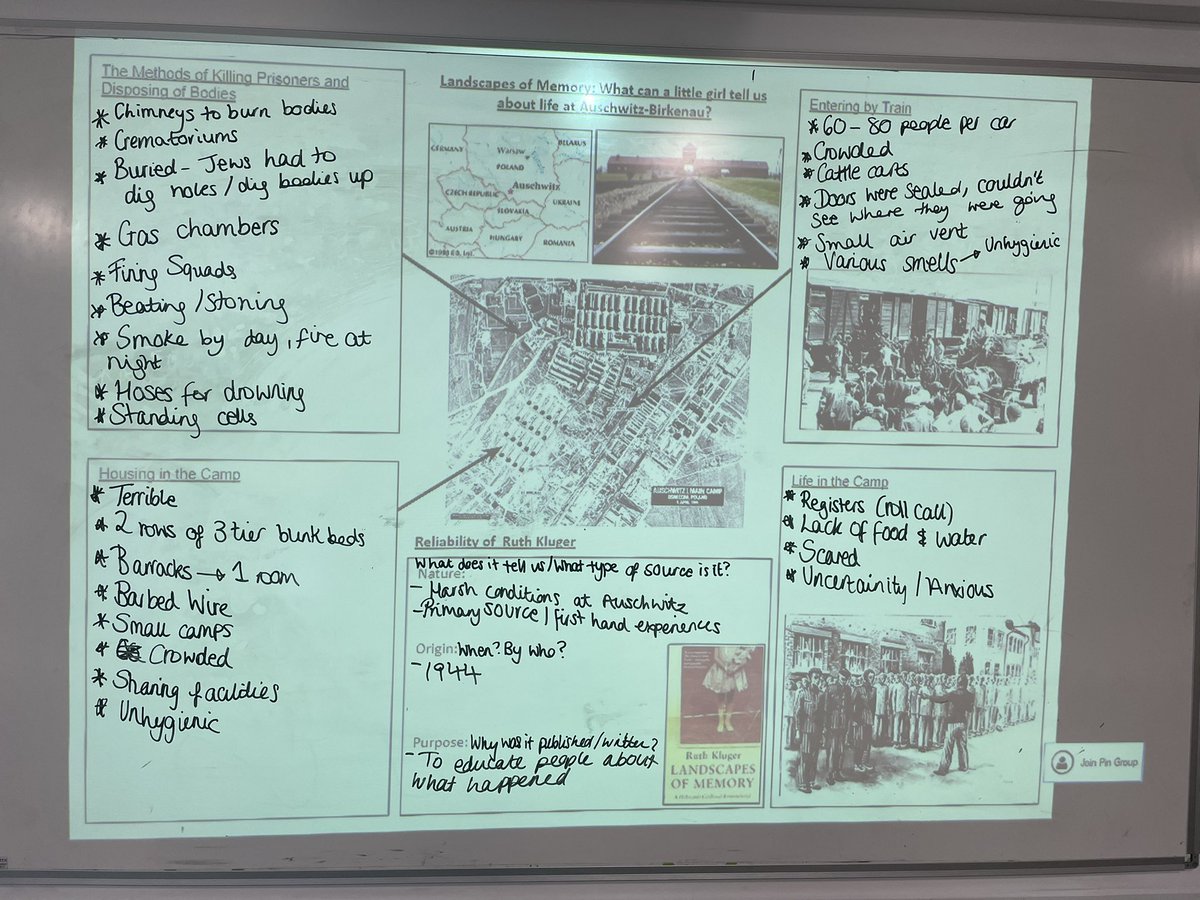 The Methods of Killing Prisoners and
Disposing of Bodies
* Chimneys to burn bodies
* Crematoriums
* Buried - Jews had to
dig holes / dig bodies up
* Gas chambers
* Firing Squads
* Beating / Stoning
* Smoke by day, fire at
night
* Hoses for drowning
* Standing cells
Landscapes of Memory: What can a little girl tell us
about life at Auschwitz-Birkenau?
GERMANY
Warsaw
BELARUS
POLAND
Auschwitz
CZECH REPUBLIC
UKRAINE
SLOVAKIA
AUSTRIA
HUNGARY
ROMANIA
AUSCHWITZ I MAIN CAMP
Entering by Train
* 60 - 80 people per car
* Crowded
* Cattle carts
* Doors were sealed, couldn't
see where they were going
* Small air vent
* Various smells → Unhygienic
Housing in the Camp
* Terrible
* 2 rows of 3 tier bunk beds
* Barracks → 1 room
* Barbed Wire
* Small camps
* Crowded
* Sharing facilities
* Unhygienic
Reliability of Ruth Kluger
What does it tell us/What type of source is it?
Nature:
- Harsh conditions at Auschwitz
- Primary source / first hand experiences
Origin: When? By who?
- 1944
Purpose: Why was it published/written?
- To educate people about
what happened
Ruth Kluger
LANDSCAPES
OF MEMORY
Life in the Camp
* Registers (roll call)
* Lack of food & water
* Scared
* Uncertainity / Anxious
Join Pin Group